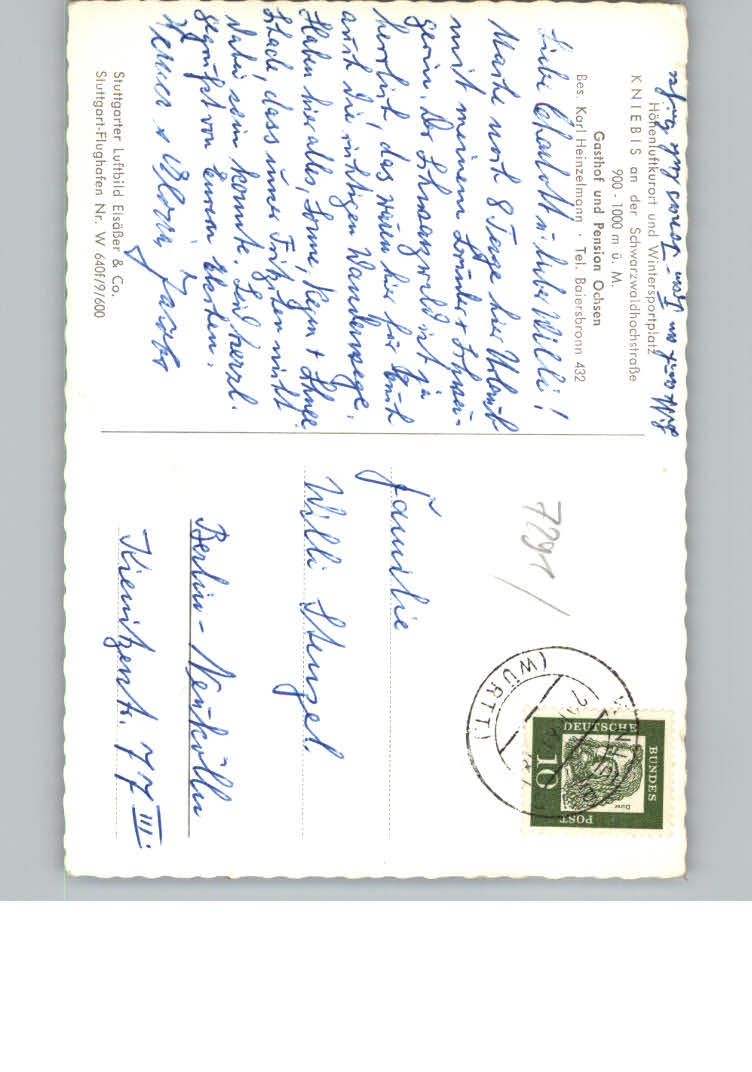 Höhenluftkurort und Wintersportplatz
KNIEBIS an der Schwarzwaldhochstraße
900 - 1000 m ü. M.
Gasthof und Pension Ochsen
Bes. Karl Heinzelmann · Tel. Baiersbronn 432
Liebe Charlott u. lieber Willi!
Mache noch 8 Tage hier Urlaub
mit meinem Bruder + Schwä-
gerin. Der Schwarzwald ist ja
herrlich, das wären hier für Euch
auch die richtigen Wanderwege.
Haben hier alles, Sonne, Regen + Schnee.
Schade, dass unser nicht
dabei sein konnte. Seid herzl.
gegrüßt von Eurem
Jacobs
Stuttgarter Luftbild Elsäßer & Co.
Stuttgart-Flughafen Nr. W 640f/9/600
Familie
Willi Stenzel
Berlin-Neukölln
Kienitzerstr. 77 III.
(WÜRTT)
DEUTSCHE
BUNDES
POST
10
Dürer